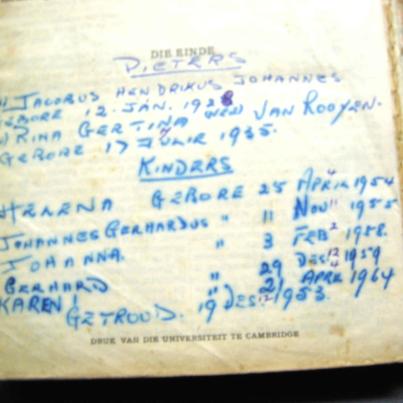 DIE EINDE
PIETERS
JACOBUS HENDRIKUS JOHANNES
GEBORE 12. JAN. 1928
RINA GERTINA NEE VAN ROOYEN.
GEBORE 17 JULIE 1935.
KINDERS
HELENA GEBORE 25 APRIL 1954
JOHANNES GERHARDUS " 11 NOV 1955
JOHANNA. " 3 FEB 1958.
GERHARD " 29 DES 1959
KAREN! " 2 APRIL 1964
GETROUD. 19 DES. 1953.
DRUK VAN DIE UNIVERSITEIT TE CAMBRIDGE